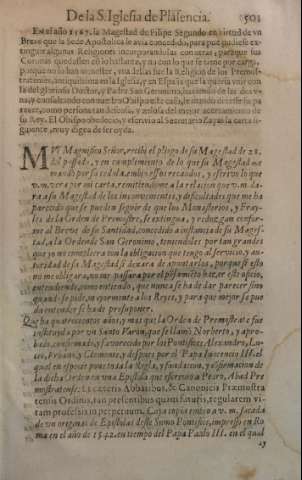 De la S. Iglesia de Plasencia. 501
En el año 1567. la Magestad de Filipe Segundo en virtud de vn
Breue que la Sede Apostolica le auia concedido, para que pudiese ex-
tinguir algunas Religiones incorporandolas con otras, porque sus
Coronas quedassen en so lustrado, y no con lo que se tiene por cargo,
porque no lo an menester, vna dellas fue la Religion de los Premos-
tratenses, antiquissima en la Iglesia, y en España que la queria vnir con
la del glorioso Doctor, y Padre San Geronimo, luzimiento de las de-
y consultando con nuestro Obispo este caso, le mando diesse su pa-
recer, como persona tan docta, y zelosa del mayor acertamiento de
su Rey. El Obispo obedecio, y escriuio al Secretario Zayas la carta si-
guiente, muy digna de ser oyda.
MVY Magnifico Señor, recibi el pliego de su Magestad de 28.
del passado, y en cumplimiento de lo que su Magestad me
mandò por su cedula, embio essos recaudos, y escriuo lo que
v. m. verà por mi carta, remitiendome a la relacion que v. m. da-
rà a su Magestad de los inconuenientes, y dificultades que me ha
parecido que se pueden seguir de que los Monasterios, y Fray-
les de la Orden de Premostre, se extingan, y reduzgan confor-
me al Breue de su Santidad, concedido a instancia de su Mages-
tad, a la Orden de San Geronimo, teniendoles por tan grandes
que yo no cumpliera con la obligacion que tengo al seruicio, y au-
toridad de su Magestad si dexara de apuntarlos, porque si esto
no me obligara, no me passara por el pensamiento hazer este oficio,
entendiendo, como entiendo, que nunca se ha de dar parecer sino
quando se pide, mayormente a los Reyes, y para que mejor se pue-
da entender se ha de presuponer.
Que ha quatrocientos años, y mas que la Orden de Premostre fue
instituyda por vn Santo Varon, que se llamò Norberto, y apro-
bada, confirmada, y fauorecida por los Pontifices, Alexandro, Lu-
cio, Vrbano, y Clemente, y despues por el Papa Inocencio III. el
qual en especie pone toda la Regla, y fundacion, y confirmacion de
la dicha Orden en vna Epistola que escriuio a Pedro, Abad Pre-
monstratense: & cæteris Abbatibus, & Canonicis Præmonstra
tensis Ordinis, tam presentibus quam futuris, regularem vi-
tam professis in perpetuum. Cuya copia embio a v. m. sacada
de vn original de Epistolas deste Sumo Pontifice, impresso en Ro
ma en el año de 1542. en tiempo del Papa Paulo III. en el qual